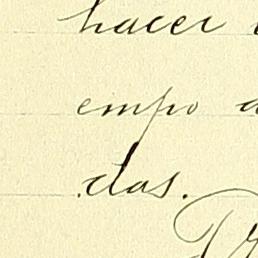 hacer
empo
das.